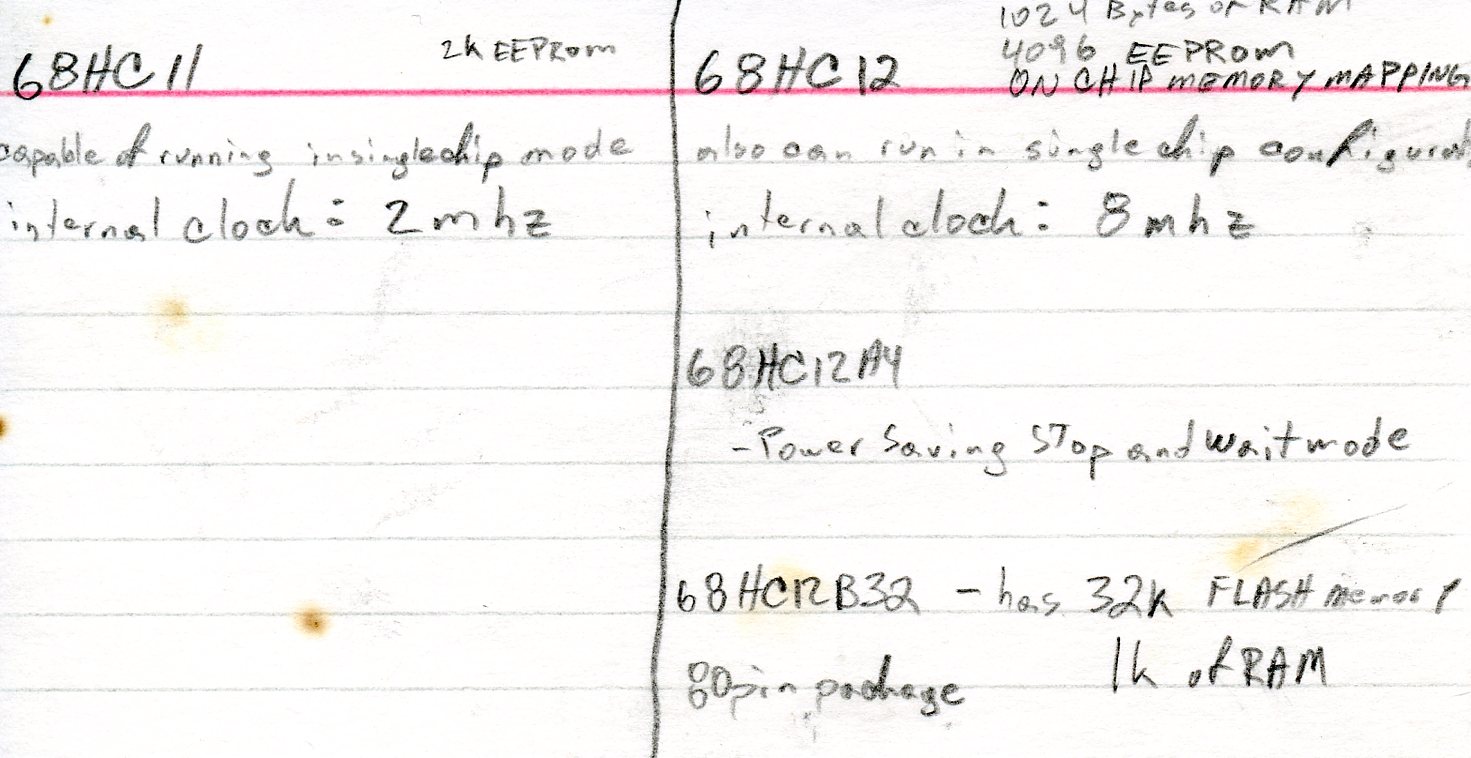 68HC11 2k EEPROM
capable of running in single chip mode
internal clock: 2mhz
1024 Bytes of RAM
4096 EEPROM
68HC12 ON CHIP MEMORY MAPPING
also can run in single chip configurat
internal clock: 8mhz
68HC12A4
- Power Saving STop and wait mode
68HC12B32 - has 32k FLASH memory
1k of RAM
80pin package